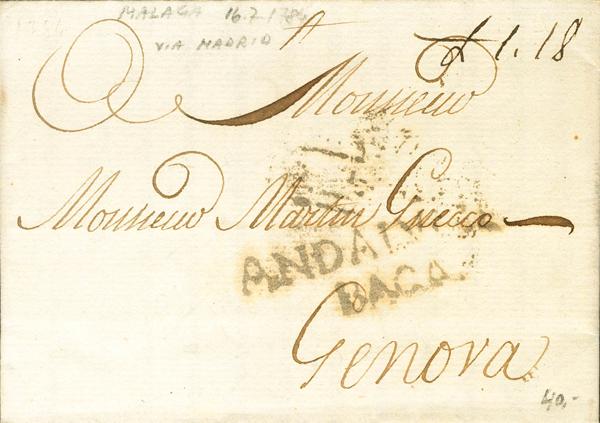 MALAGA 16.7.1784
VIA MADRID
A
£ 1.18
Monsieur
Monsieur Martin Grecco
ANDAL
BAGA
Genova
40,-